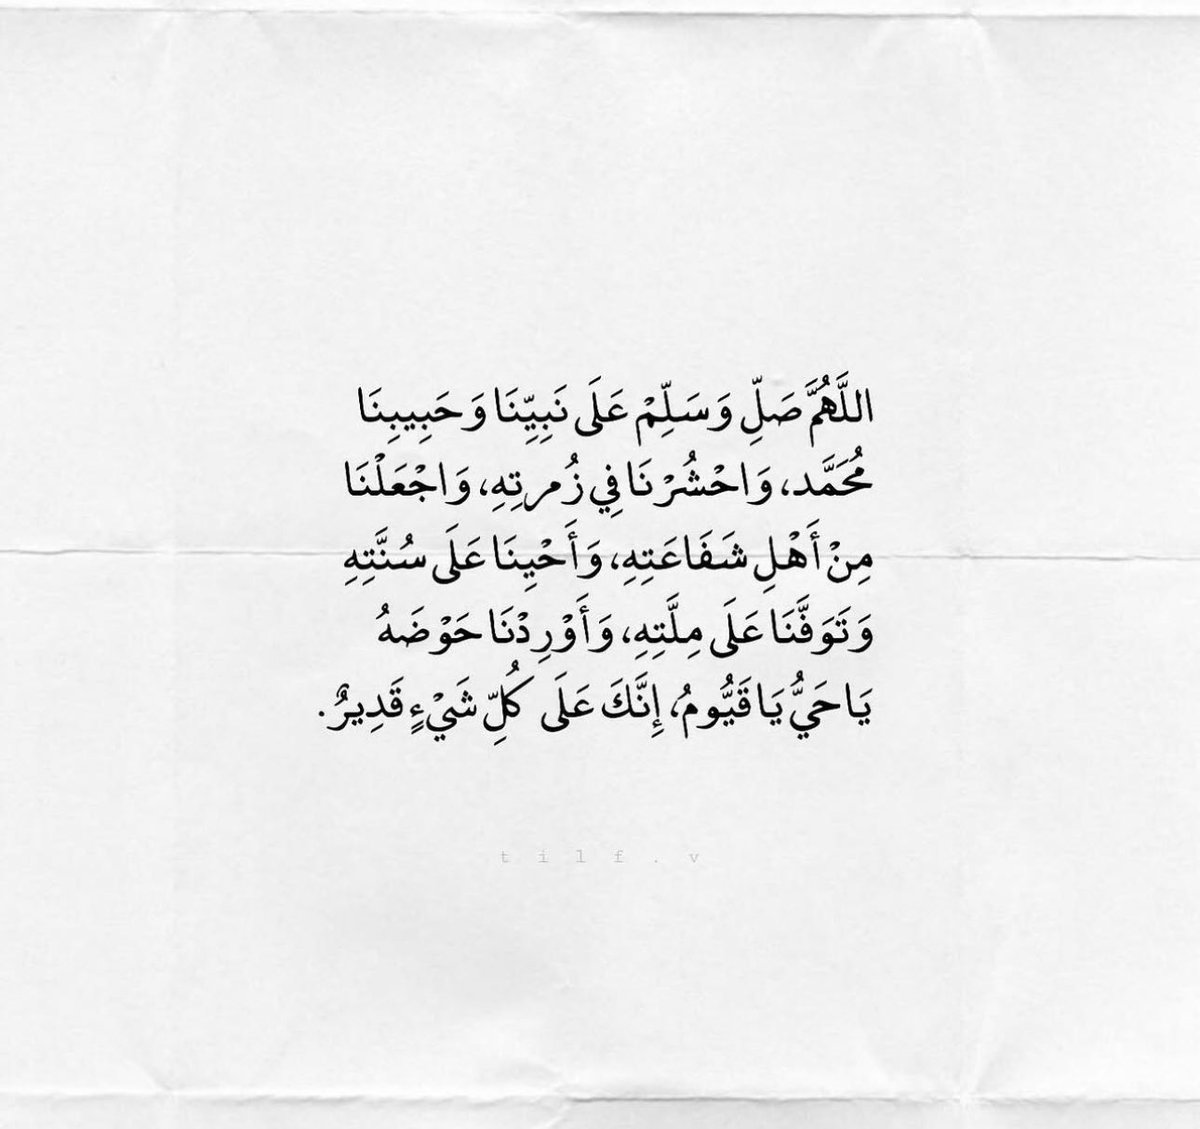 اللَّهُمَّ صَلِّ وَسَلِّمْ عَلَى نَبِيِّنَا وَحَبِيبِنَا
مُحَمَّد، وَاحْشُرْنَا فِي زُمرتِهِ، وَاجْعَلْنَا
مِنْ أَهْلِ شَفَاعَتِهِ، وَأَحْيِنَا عَلَى سُنَّتِهِ
وَتَوَفَّنَا عَلَى مِلَّتِهِ، وَأَوْرِدْنَا حَوْضَهُ
يَا حَيُّ يَا قَيُّومُ، إِنَّكَ عَلَى كُلِّ شَيْءٍ قَدِيرٌ.
tilf.v